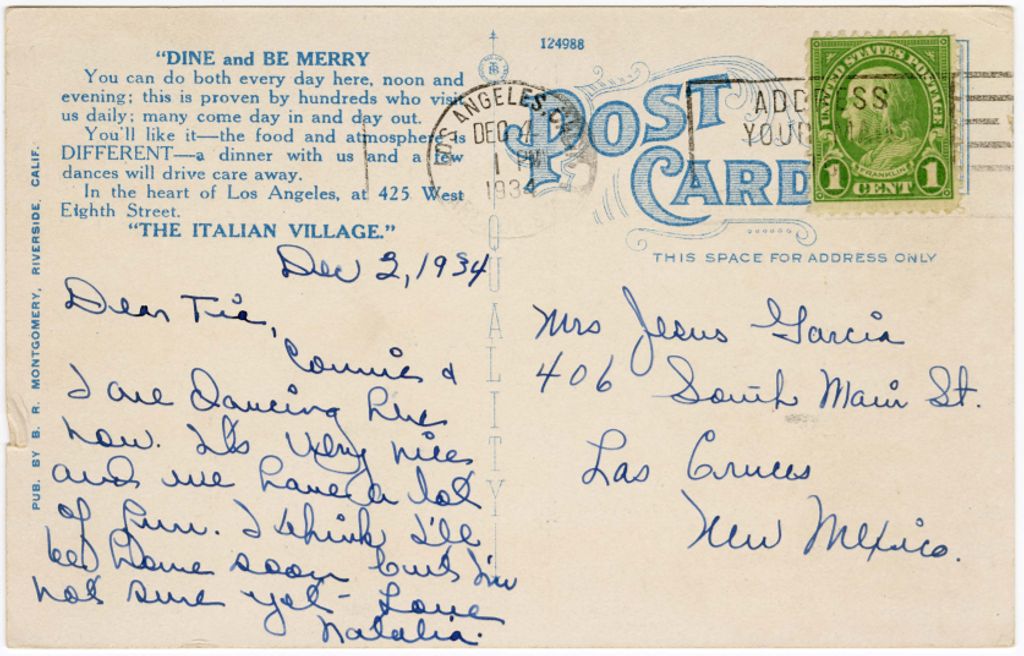 "DINE and BE MERRY
You can do both every day here, noon and
evening; this is proven by hundreds who visit
us daily; many come day in and day out.
You'll like it—the food and atmosphere is
DIFFERENT—a dinner with us and a few
dances will drive care away.
In the heart of Los Angeles, at 425 West
Eighth Street.
"THE ITALIAN VILLAGE."
PUB. BY B. R. MONTGOMERY, RIVERSIDE, CALIF.
Dec 2, 1934
Dear Tia,
Connie &
I are Dancing here
now. It's very nice
and we have a lot
of fun. I think I'll
be home soon but I'm
not sure yet - Love
Natalia.
QUALITY
124988
POST
CARD
THIS SPACE FOR ADDRESS ONLY
LOS ANGELES, CALIF
DEC 4
1 PM
1934
ADDRESS
YOUR MAIL
UNITED STATES POSTAGE
FRANKLIN
1 CENT 1
Mrs Jesus Garcia
406 South Main St.
Las Cruces
New Mexico.